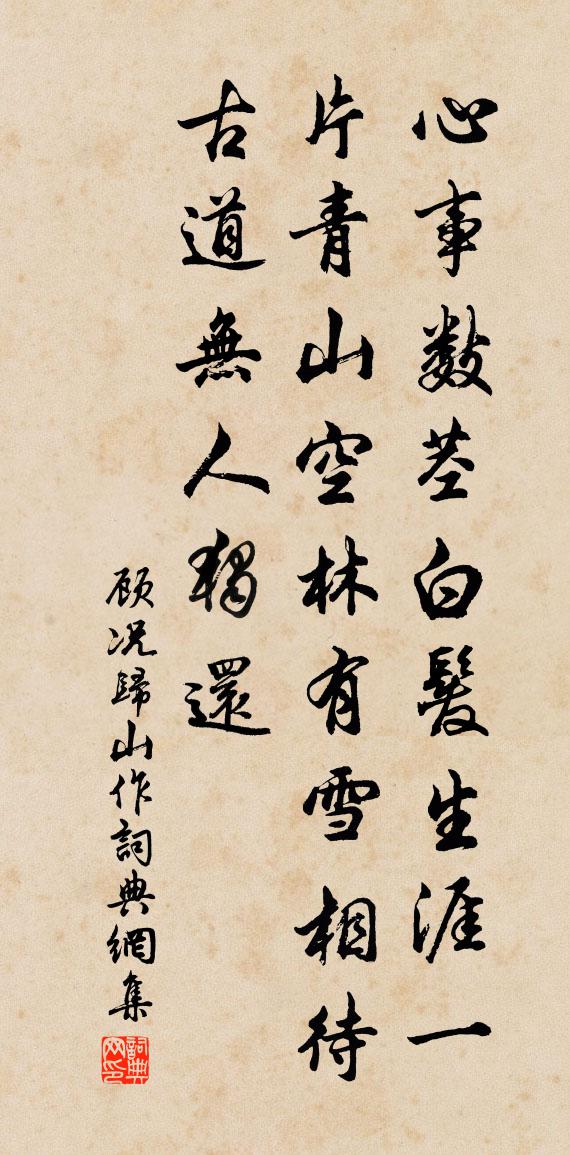 心事數莖白髮生涯一
片青山空林有雪相待
古道無人獨還
顾况歸山作詞典網集
詞典网印